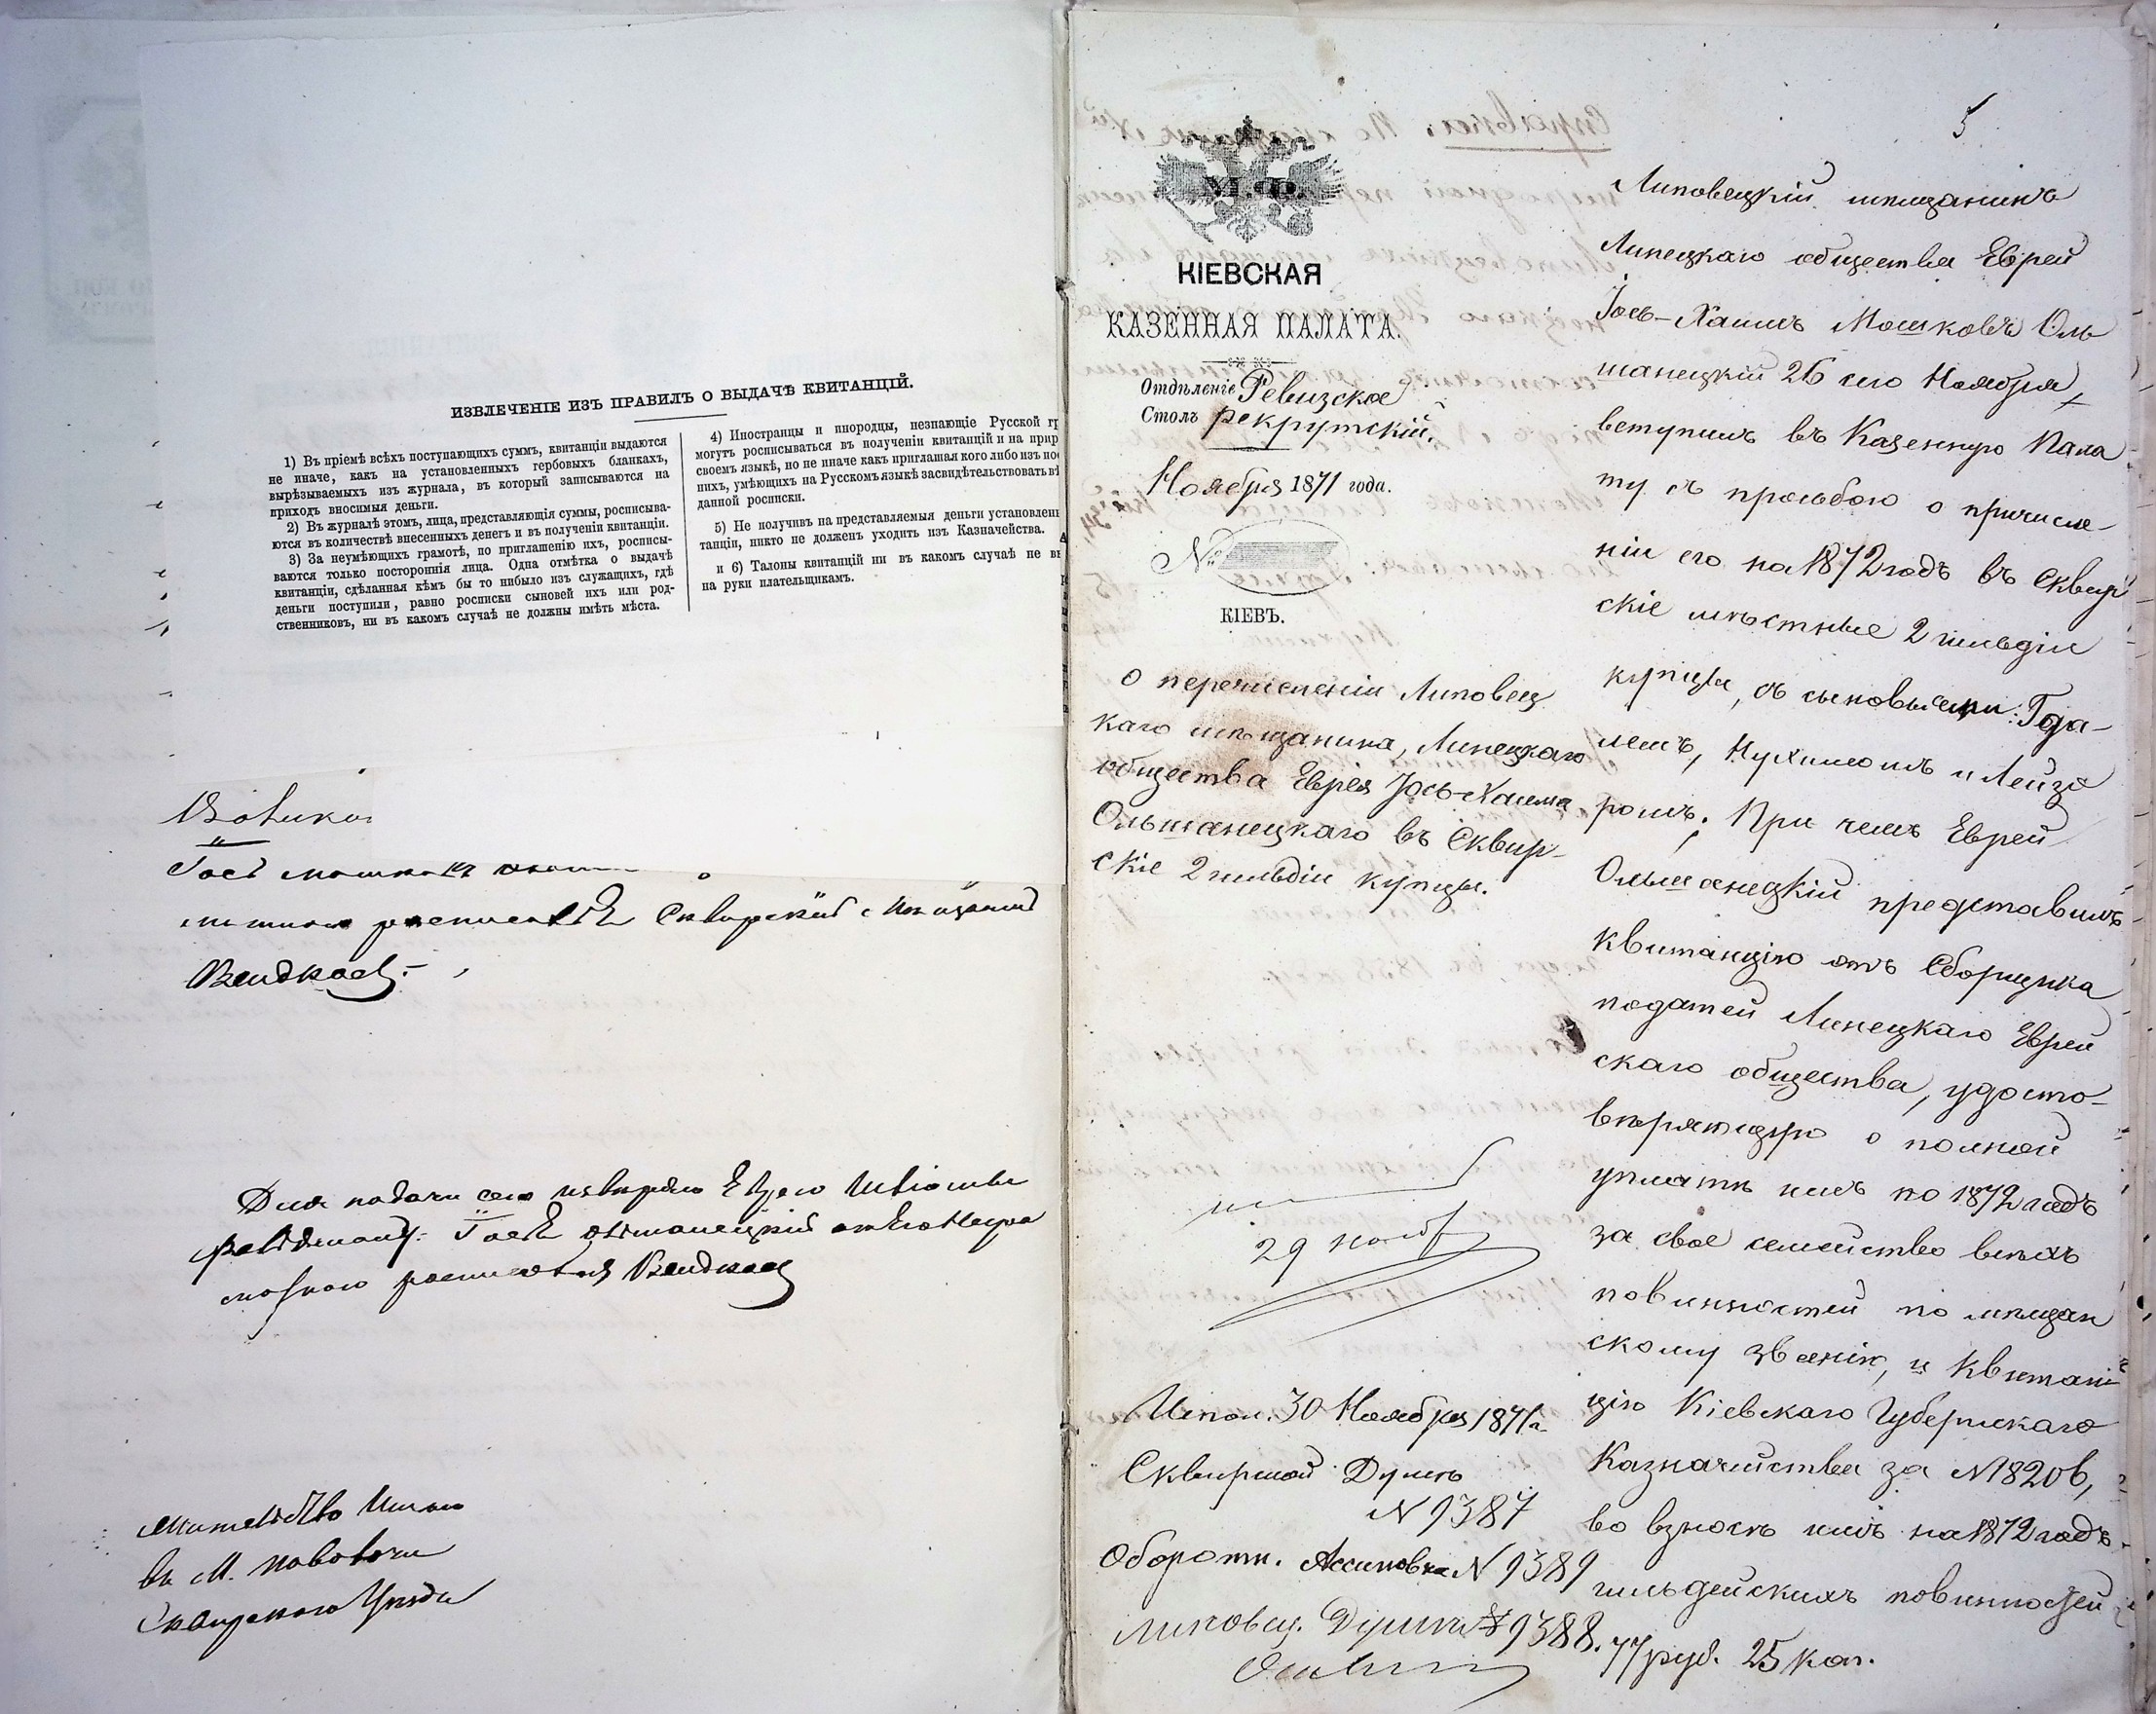 ИЗВЛЕЧЕНІЕ ИЗЪ ПРАВИЛЪ О ВЫДАЧѢ КВИТАНЦІЙ.
1) Въ пріемѣ всѣхъ поступающихъ суммъ, квитанціи выдаются
не иначе, какъ на установленныхъ гербовыхъ бланкахъ,
вырѣзываемыхъ изъ журнала, въ который записываются на
приходъ вносимыя деньги.
2) Въ журналѣ этомъ, лица, представляющія суммы, росписыва-
ются въ количествѣ внесенныхъ денегъ и въ полученіи квитанціи.
3) За неумѣющихъ грамотѣ, по приглашенію ихъ, росписы-
ваются только постороннія лица. Одна отмѣтка о выдачѣ
квитанціи, сдѣланная кѣмъ бы то нибыло изъ служащихъ, гдѣ
деньги поступили, равно росписки сыновей ихъ или род-
ственниковъ, ни въ какомъ случаѣ не должны имѣть мѣста.
4) Иностранцы и инородцы, незнающіе Русской гр
могутъ росписываться въ полученіи квитанцій и на прир
своемъ языкѣ, но не иначе какъ приглашая кого либо изъ пос
нихъ, умѣющихъ на Русскомъ языкѣ засвидѣтельствовать вѣ
данной росписки.
5) Не получивъ на представляемыя деньги установлен
танціи, никто не долженъ уходить изъ Казначейства.
и 6) Талоны квитанцій ни въ какомъ случаѣ не вы
на руки плательщикамъ.
Сквирскій мѣщанинъ
Для подачи сего
жительство имѣю
въ М. Паволочи
Сквирскаго Уѣзда
5
М.Ф.
КІЕВСКАЯ
КАЗЕННАЯ ПАЛАТА.
Отдѣленіе Ревизское
Столъ рекрутскій.
Ноября 1871 года.
№
КІЕВЪ.
О перечисленіи Липовец
каго мѣщанина, Линецкаго
общества Еврея Іось-Хаима
Ольшанецкаго въ Сквир-
скіе 2 гильдіи купцы.
29 нояб
Испол. 30 Ноября 1871 г.
Сквирской Думѣ
№ 9387
Оборотн. Ассиновка № 9389
Липовец. Думѣ № 9388.
Липовецкій мѣщанинъ
Линецкаго общества Еврей
Іось-Хаимъ Мошковъ Оль
шанецкій 26 сего Ноября,
вступилъ въ Казенную Пала
ту съ просьбою о причисле-
ніи его на 1872 годъ въ Сквир
скіе мѣстные 2 гильдіи
купцы, съ сыновьями: Года-
лемъ, Нухимомъ и Лейзо
ромъ. При чемъ Еврей
Ольшанецкій представилъ
квитанцію отъ Сборщика
податей Линецкаго Еврей
скаго общества, удосто-
вѣряющую о полной
уплатѣ имъ по 1872 годъ
за свое семейство всѣхъ
повинностей по мѣщан
скому званію, и квитан
цію Кіевскаго Губернскаго
Казначейства за № 18206,
во взносѣ имъ на 1872 годъ
гильдейскихъ повинностей
77 руб. 25 коп.